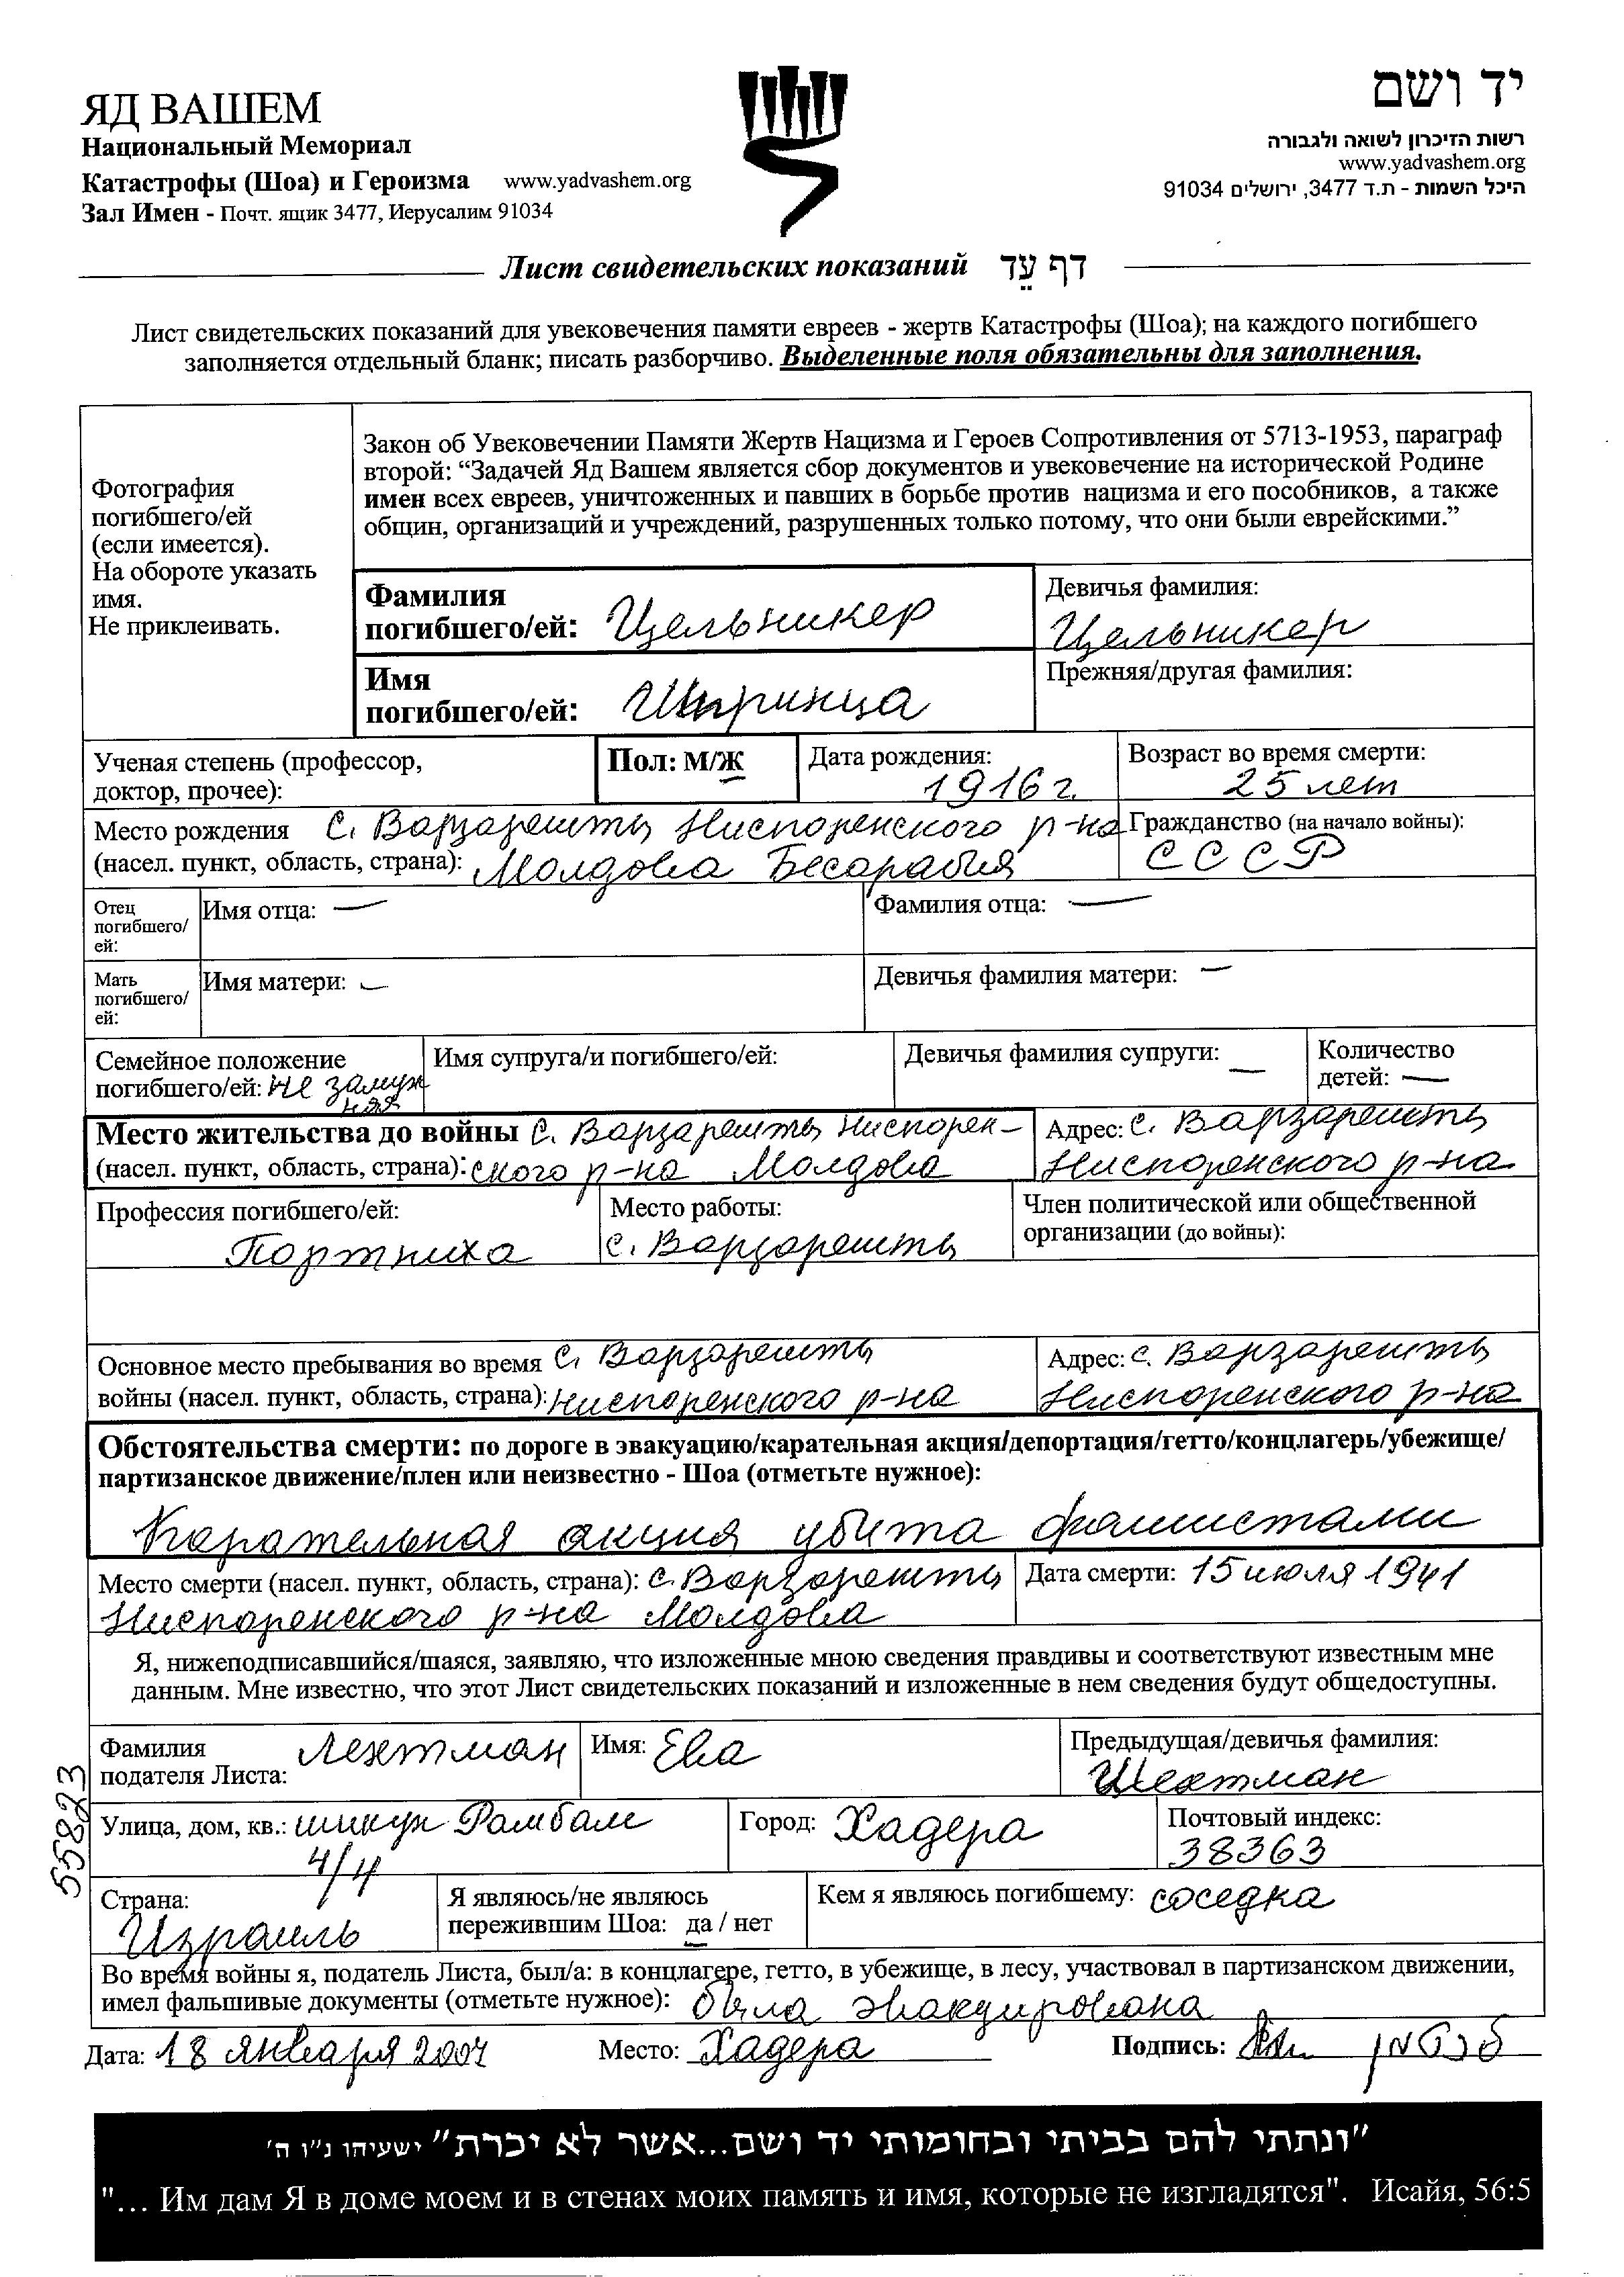 ЯД ВАШЕМ
Национальный Мемориал
Катастрофы (Шоа) и Героизма www.yadvashem.org
Зал Имен - Почт. ящик 3477, Иерусалим 91034
יד ושם
רשות הזיכרון לשואה ולגבורה
www.yadvashem.org
היכל השמות - ת.ד 3477, ירושלים 91034
Лист свидетельских показаний דף עֵד
Лист свидетельских показаний для увековечения памяти евреев - жертв Катастрофы (Шоа); на каждого погибшего
заполняется отдельный бланк; писать разборчиво. Выделенные поля обязательны для заполнения.
Фотография
погибшего/ей
(если имеется).
На обороте указать
имя.
Не приклеивать.
Закон об Увековечении Памяти Жертв Нацизма и Героев Сопротивления от 5713-1953, параграф
второй: “Задачей Яд Вашем является сбор документов и увековечение на исторической Родине
имен всех евреев, уничтоженных и павших в борьбе против нацизма и его пособников, а также
общин, организаций и учреждений, разрушенных только потому, что они были еврейскими.”
Фамилия
погибшего/ей: Цельникер
Девичья фамилия:
Цельникер
Имя
погибшего/ей: Шпринца
Прежняя/другая фамилия:
Ученая степень (профессор,
доктор, прочее):
Пол: М/Ж
Дата рождения:
1916 г.
Возраст во время смерти:
25 лет
Место рождения с. Варзарешты Ниспоренского р-на
(насел. пункт, область, страна): Молдова Бесарабия
Гражданство (на начало войны):
СССР
Отец
погибшего/
ей:
Имя отца: —
Фамилия отца: —
Мать
погибшего/
ей:
Имя матери: —
Девичья фамилия матери: —
Семейное положение
погибшего/ей: не замуж
няя
Имя супруга/и погибшего/ей:
Девичья фамилия супруги: —
Количество
детей: —
Место жительства до войны с. Варзарешты Ниспорен-
(насел. пункт, область, страна): ского р-на Молдова
Адрес: с. Варзарешты
Ниспоренского р-на
Профессия погибшего/ей:
Портниха
Место работы:
с. Варзарешты
Член политической или общественной
организации (до войны):
Основное место пребывания во время с. Варзарешты
войны (насел. пункт, область, страна): Ниспоренского р-на
Адрес: с. Варзарешты
Ниспоренского р-на
Обстоятельства смерти: по дороге в эвакуацию/карательная акция/депортация/гетто/концлагерь/убежище/
партизанское движение/плен или неизвестно - Шоа (отметьте нужное):
Карательная акция убита фашистами
Место смерти (насел. пункт, область, страна): с. Варзарешты
Ниспоренского р-на Молдова
Дата смерти: 15 июля 1941
Я, нижеподписавшийся/шаяся, заявляю, что изложенные мною сведения правдивы и соответствуют известным мне
данным. Мне известно, что этот Лист свидетельских показаний и изложенные в нем сведения будут общедоступны.
Фамилия
подателя Листа: Лехтман
Имя: Ева
Предыдущая/девичья фамилия:
Шехтман
Улица, дом, кв.: шикун Рамбам
4/4
Город: Хадера
Почтовый индекс:
38363
Страна:
Израиль
Я являюсь/не являюсь
пережившим Шоа: да / нет
Кем я являюсь погибшему: соседка
Во время войны я, податель Листа, был/а: в концлагере, гетто, в убежище, в лесу, участвовал в партизанском движении,
имел фальшивые документы (отметьте нужное): была эвакуирована
Дата: 18 января 2007 Место: Хадера Подпись:
55823
"ונתתי להם בביתי ובחומותי יד ושם...אשר לא יכרת" ישעיהו נ"ו ה'
"... Им дам Я в доме моем и в стенах моих память и имя, которые не изгладятся". Исайя, 56:5